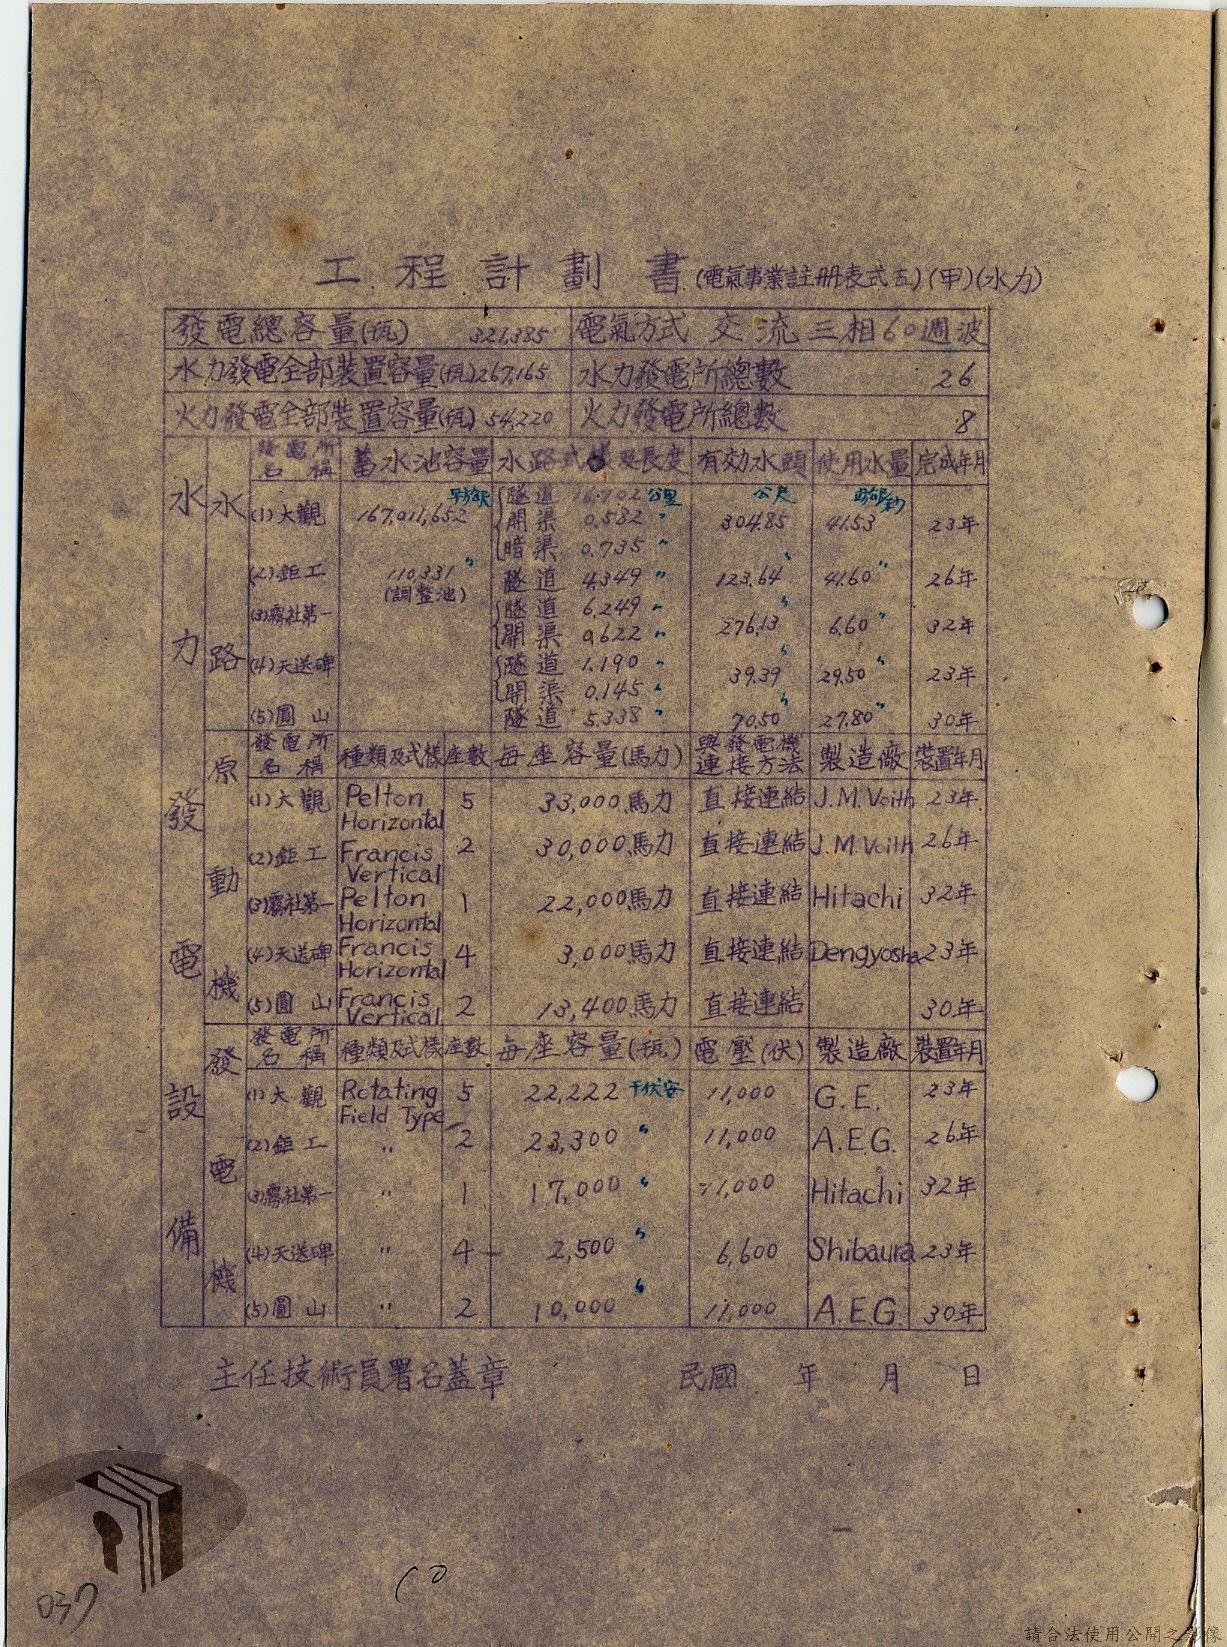 工程計劃書(電氣事業註冊表式五)(甲)(水力)
發電總容量(瓩) 321,385 電氣方式 交流三相60週波
水力發電全部裝置容量(瓩)267,165 水力發電所總數 26
火力發電全部裝置容量(瓩)54,220 火力發電所總數 8
水力發電設備
水路
發電所名稱 蓄水池容量 水路式樣及長度 有効水頭 使用水量 完成年月
(1)大觀 167,011,652 隧道 公里 公尺 23年
開渠 0.582 〃 304.85 41.53
暗渠 0.735 〃
(2)鉅工 110,331 〃 (調整池) 隧道 4.349 〃 123.64 〃 41.60 〃 26年
(3)霧社第一 隧道 6.249 〃 276.13 〃 6.60 〃 32年
開渠 0.622 〃
(4)天送碑 隧道 1.190 〃 39.39 〃 29.50 〃 23年
開渠 0.145 〃
(5)圓山 隧道 5.338 〃 70.50 〃 27.80 〃 30年
原動機
發電所名稱 種類及式樣 座數 每座容量(馬力) 與發電機連接方法 製造廠 裝置年月
(1)大觀 Pelton Horizontal 5 33,000馬力 直接連結 J.M.Voith 23年
(2)鉅工 Francis Vertical 2 30,000馬力 直接連結 J.M.Voith 26年
(3)霧社第一 Pelton Horizontal 1 22,000馬力 直接連結 Hitachi 32年
(4)天送碑 Francis Horizontal 4 3,000馬力 直接連結 Dengyosha 23年
(5)圓山 Francis Vertical 2 13,400馬力 直接連結 30年
發電機
發電所名稱 種類及式樣 座數 每座容量(瓩) 電壓(伏) 製造廠 裝置年月
(1)大觀 Rotating Field Type 5 22,222 千伏安 11,000 G.E. 23年
(2)鉅工 〃 2 23,300 〃 11,000 A.E.G. 26年
(3)霧社第一 〃 1 17,000 〃 11,000 Hitachi 32年
(4)天送碑 〃 4 2,500 〃 6,600 Shibaura 23年
(5)圓山 〃 2 10,000 〃 11,000 A.E.G. 30年
主任技術員署名蓋章 民國 年 月 日
037
請合法使用公開之影像